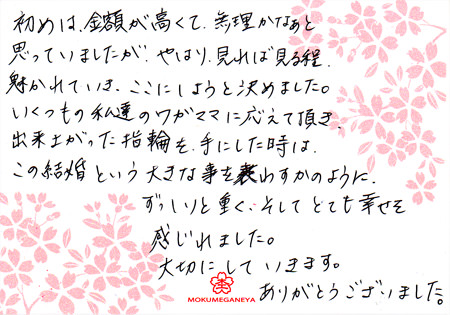 初めは、金額が高くて、無理かなぁと
思っていましたが、やはり、見れば見る程、
魅かれていき、ここにしようと決めました。
いくつもの私達のワガママに応えて頂き、
出来上がった指輪を、手にした時は、
この結婚という大きな事を表わすかのように、
ずっしりと重く、そしてとても幸せを
感じれました。
大切にしていきます。
MOKUMEGANEYA
ありがとうございました。